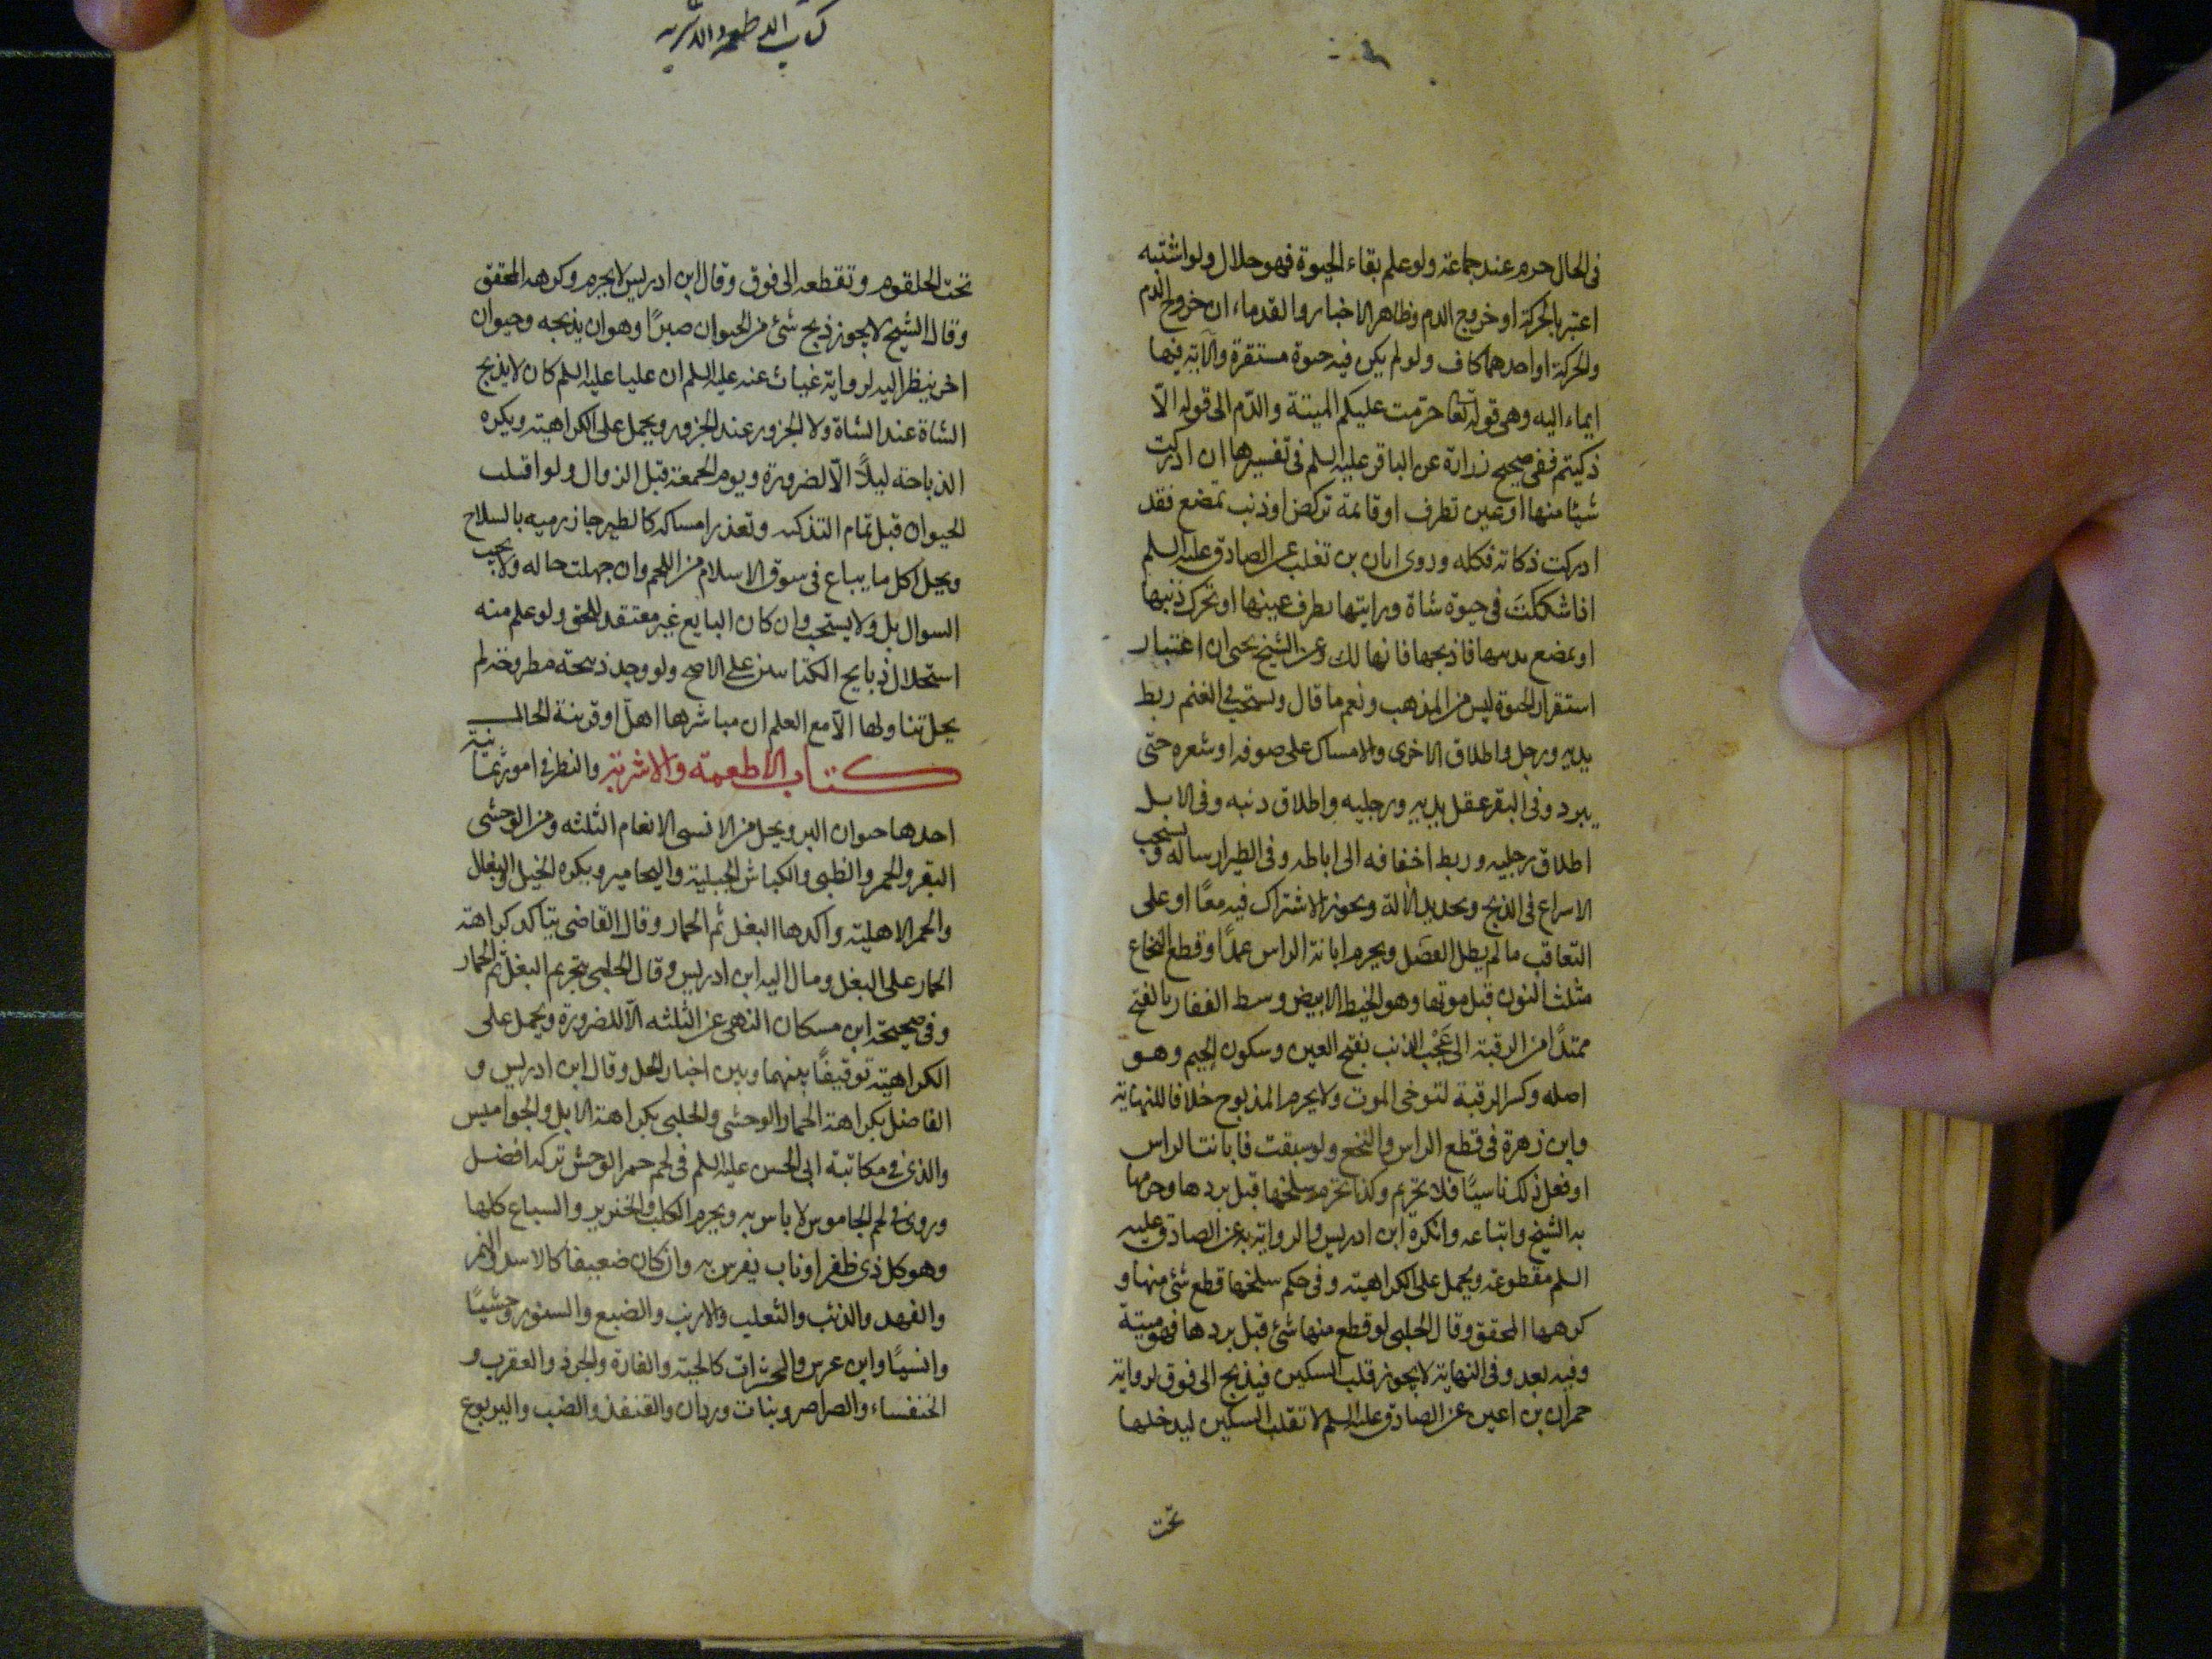 في الحال حرم عند جماعة ولو علم بقاء الحيوة فهو حلال ولو اشتبه
اعتبر بالحركة او خروج الدم وظاهر الاخبار والقدماء ان خروج الدم
والحركة او احدهما كاف ولو لم يكن فيه حيوة مستقرة والآية فيها
ايماء اليه وهي قوله تعا حرّمت عليكم الميتة والدّم الى قوله الاّ
ذكيتم ففي صحيح زرارة عن الباقر عليه السلم في تفسيرها ان ادركت
شيئا منها او عين تطرف او قائمة تركض او ذنب تمضع فقد
ادركت ذكاته فكله وروى ابان بن تغلب عن الصادق عليه السلم
اذا شككت في حيوة شاة ورايتها تطرف عينها او تحرك ذنبها
او تمضع بذنبها فاذبحها فانها لك وعن الشيخ يحيى ان اعتبار
استقرار الحيوة ليس من المذهب ونعم ما قال ويستحب في الغنم ربط
يديه ورجل واطلاق الاخرى والامساك على صوفه او شعره حتى
يبرد وفي البقر عقل يديه ورجليه واطلاق ذنبه وفي الابل
اطلاق رجليه وربط اخفافه الى اباطه وفي الطير ارساله ويستحب
الاسراع في الذبح وتحديد الآلة ويجوز الاشتراك فيه معًا او على
التعاقب ما لم يطل الفصل ويحرم ابانة الراس عمدًا وقطع النخاع
مثلث النون قبل موتها وهو الخيط الابيض وسط الفقار بالفتح
ممتدًا من الرقبة الى عَجْب الذنب بفتح العين وسكون الجيم وهو
اصله وكسر الرقبة لتوخي الموت ولا يحرم المذبوح خلافا للنهاية
وابن زهرة في قطع الراس والنخع ولو سبقت فابانت الراس
او فعل ذلك ناسيًا فلا تحريم وكذا تحرم سلخها قبل بردها وحرمها
به الشيخ واتباعه وانكره ابن ادريس والرواية به عن الصادق عليه
السلم مقطوعة ويحمل على الكراهية وفي حكم سلخها قطع شئ منها و
كرهها المحقق وقال الحلبي لو قطع منها شئ قبل بردها فهو ميتة
وفيه بعد وفي النهاية لا يجوز قلب السكين فيذبح الى فوق لرواية
حمران بن اعين عن الصادق عليه السلم لا تقلب السكين ليدخلها
تحت
كتاب الاطعمة والاشربة
تحت الحلقوم وتقطعه الى فوق وقال ابن ادريس لا يحرم وكرهه المحقق
وقال الشيخ لا يجوز ذبح شئ من الحيوان صبرًا وهو ان يذبحه وحيوان
اخر ينظر اليه لرواية غياث عنه عليه السلم ان عليا عليه السلم كان لا يذبح
الشاة عند الشاة ولا الجزور عند الجزور ويحمل على الكراهية ويكره
الذباحة ليلًا الاّ لضرورة ويوم الجمعة قبل الزوال ولو افلت
الحيوان قبل تمام التذكية وتعذر امساكه كالطير جاز رميه بالسلاح
ويحل اكل ما يباع في سوق الاسلام من اللحم وان جهلت حاله ولا يجب
السوال بل ولا يستحب وان كان البايع غير معتقد للحق ولو علم منه
استحلال ذبايح الكتابيين على الاصح ولو وجد ذبيحة مطروحة لم
يحل تناولها الاّ مع العلم ان مباشرها اهل او قرينة الحال
كتاب الاطعمة والاشربة والنظر في امور ثمانية
احدها حيوان البر ويحل من الانسى الانعام الثلثه ومن الوحشى
البقر والحمر والظبي والكباش الجبلية واليحامير ويكره الخيل والبغال
والحمر الاهلية واكدها البغل ثم الحمار وقال القاضي يتاكد كراهة
الحمار على البغل ومال اليه ابن ادريس وقال الحلبي بتحريم البغل ثم الحمار
وفي صحيحة ابن مسكان النهى عن الثلثه الاّ للضرورة ويحمل على
الكراهية توفيقًا بينهما وبين اخبار الحل وقال ابن ادريس و
الفاضل بكراهة الحمار الوحشي والحلبي بكراهة الابل والجواميس
والذي في مكاتبة ابي الحسن عليه السلم في لحم حمر الوحش تركه افضل
وروي في لحم الجاموس لا باس به ويحرم الكلب والخنزير والسباع كلها
وهو كل ذي ظفر او ناب يفرس به وان كان ضعيفا كالاسد والنمر
والفهد والذئب والثعلب والارنب والضبع والسنور وحشيًا
وانسيًا وابن عرس والحشرات كالحية والفارة والجرذ والعقرب و
الخنفساء والصراصر وبنات وردان والقنفذ والضب واليربوع